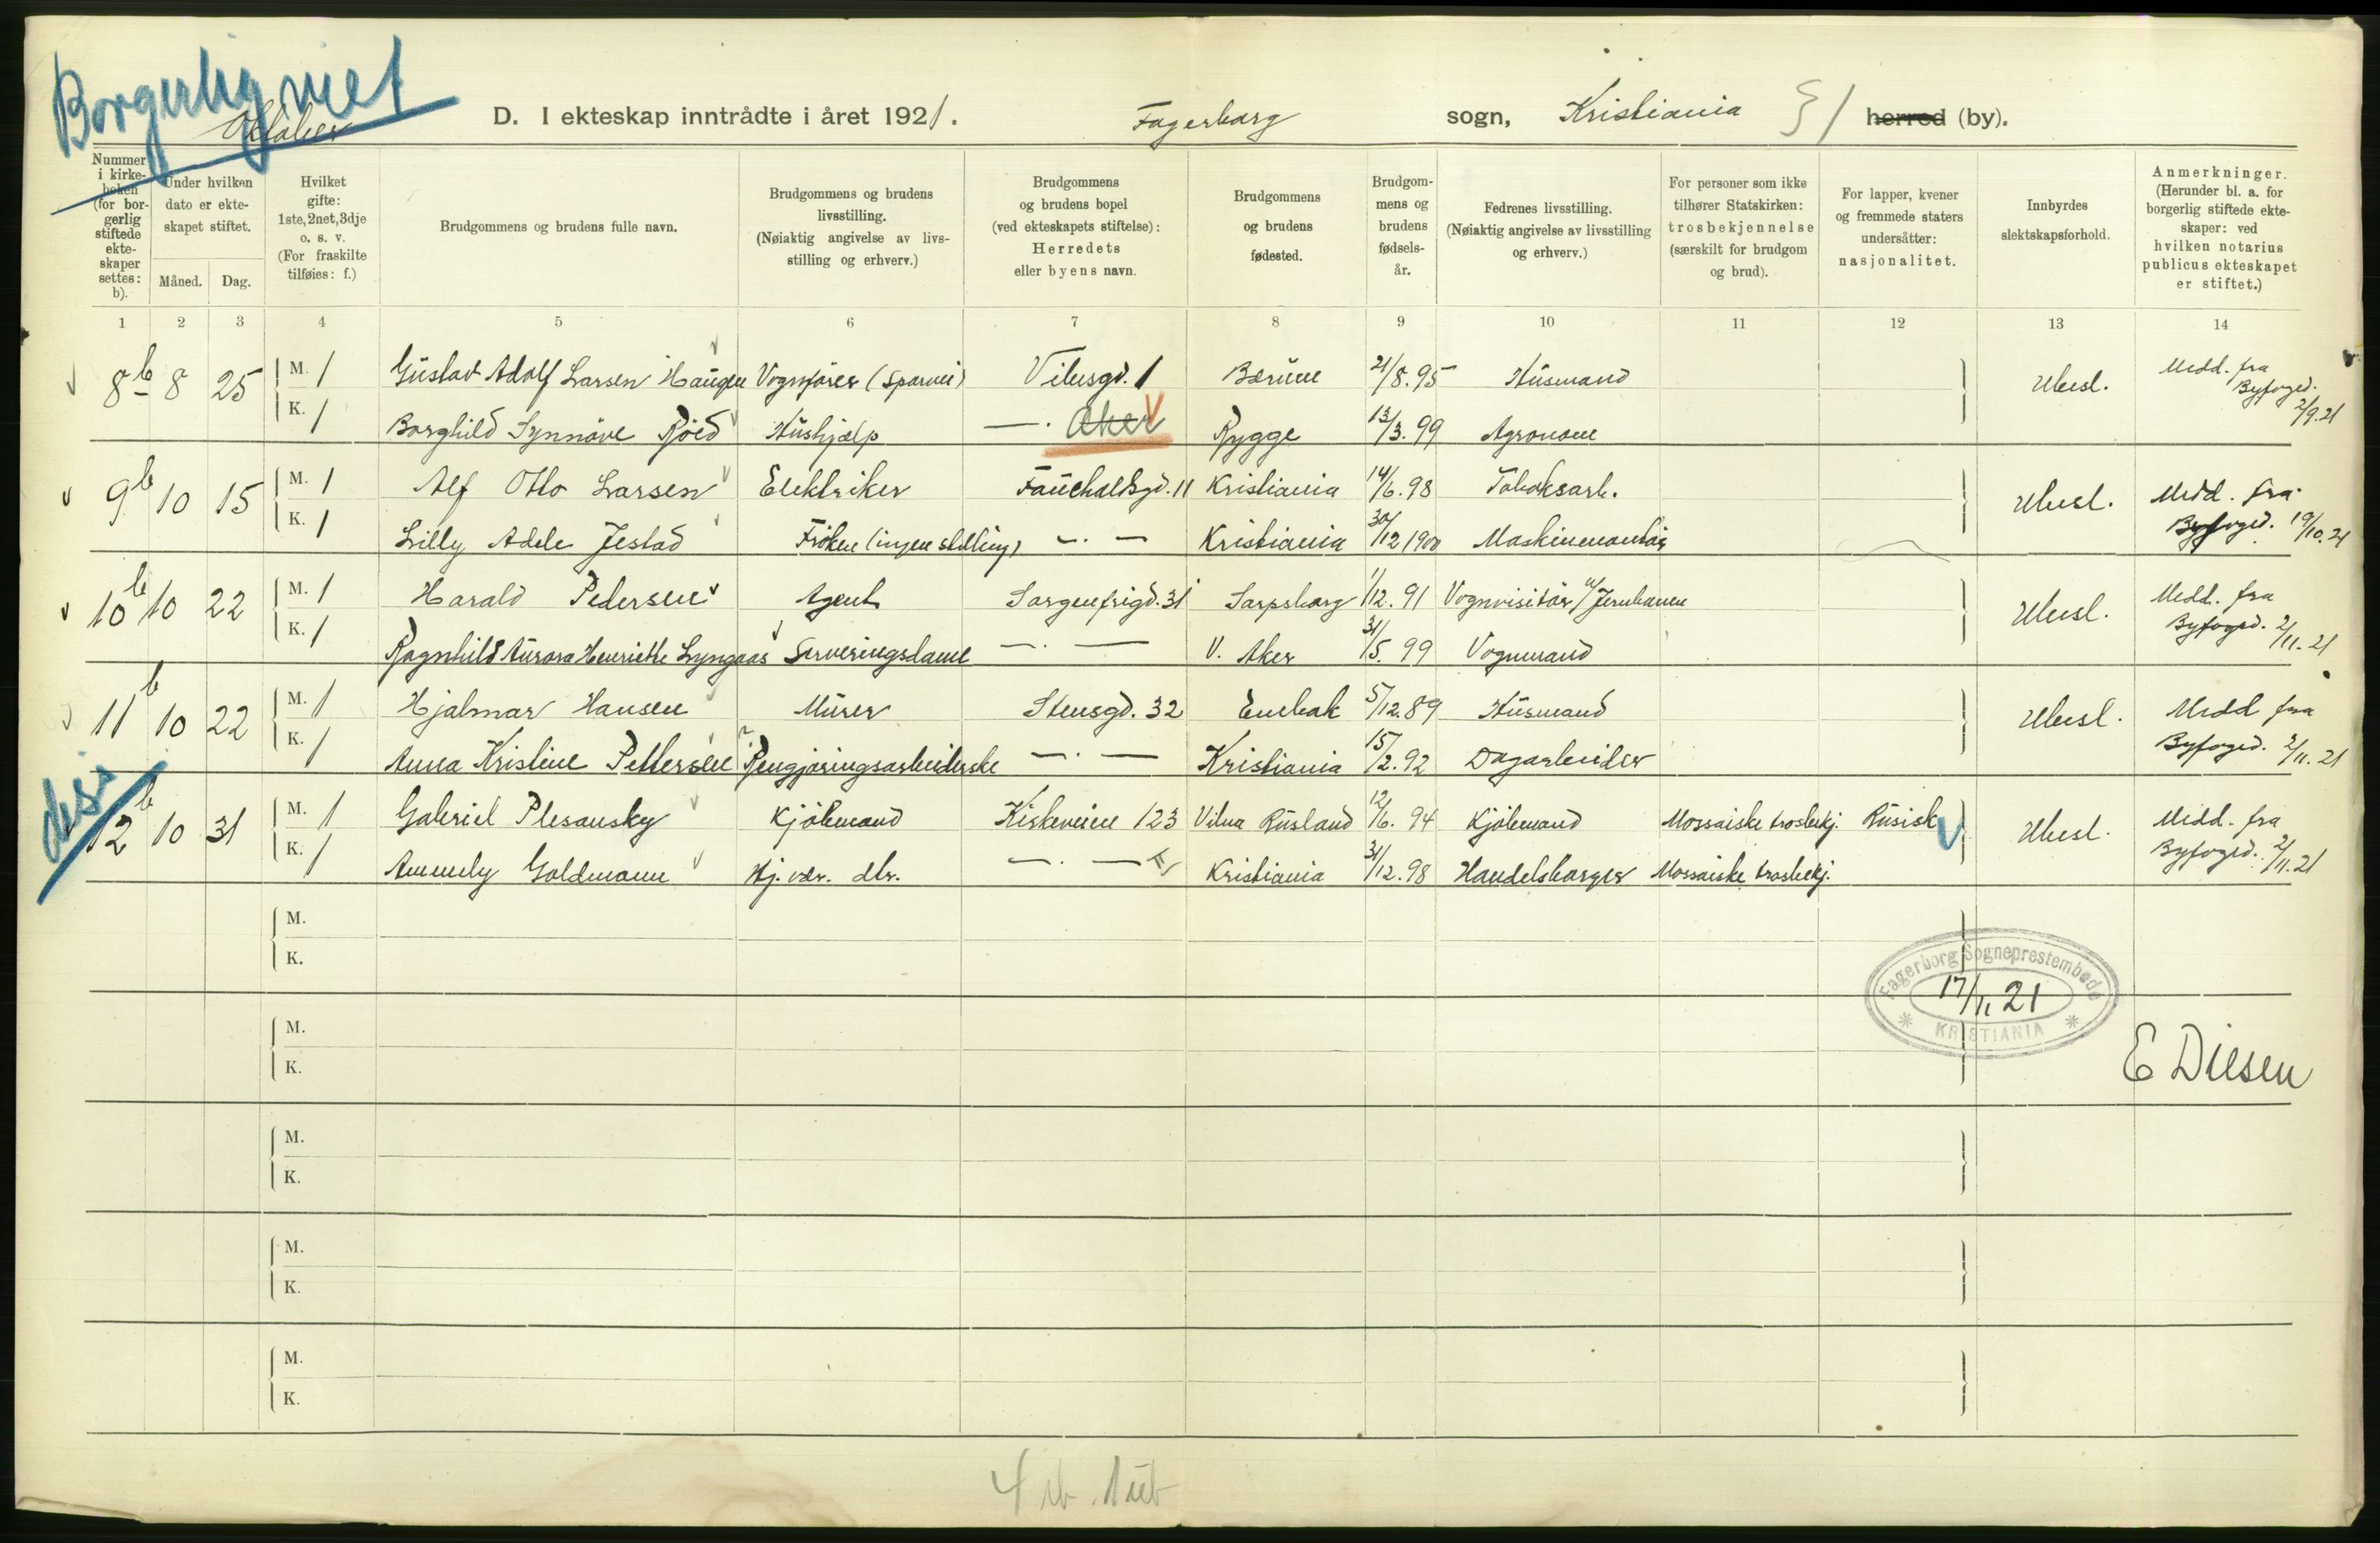 Borgerlig viet
Oktober
D. I ekteskap inntrådte i året 1921. Fagerborg sogn, Kristiania herred (by).
Nummer i kirkeboken (for borgerlig stiftede ekteskaper settes: b).
Under hvilken dato er ekteskapet stiftet.
Måned. Dag.
Hvilket gifte: 1ste, 2net, 3dje o. s. v. (For fraskilte tilføies: f.)
Brudgommens og brudens fulle navn.
Brudgommens og brudens livsstilling. (Nøiaktig angivelse av livsstilling og erhverv.)
Brudgommens og brudens bopel (ved ekteskapets stiftelse): Herredets eller byens navn.
Brudgommens og brudens fødested.
Brudgommens og brudens fødselsår.
Fedrenes livsstilling. (Nøiaktig angivelse av livsstilling og erhverv.)
For personer som ikke tilhører Statskirken: trosbekjennelse (særskilt for brudgom og brud).
For lapper, kvener og fremmede staters undersåtter: nasjonalitet.
Innbyrdes slektskapsforhold.
Anmerkninger. (Herunder bl. a. for borgerlig stiftede ekteskaper: ved hvilken notarius publicus ekteskapet er stiftet.)
1 2 3 4 5 6 7 8 9 10 11 12 13 14
8b 8 25 M. 1 Gustav Adolf Larsen Haugen Vognfører (Sporvei) Vibesgd. 1 Bærum 21/8.95 Husmand Ubesl. Medd. fra Byfoged. 2/9.21
K. 1 Borghild Synnöve Röed Hushjælp — . — Aker Rygge 13/3.99 Agronom
9b 10 15 M. 1 Alf Otto Larsen Elektriker Fauchaldsgd. 11 Kristiania 14/6.98 Tobaksarb. Ubesl. Medd. fra Byfoged. 19/10.21
K. 1 Lilly Adele Jestad Fröken (ingen stilling) — . — Kristiania 30/12 1900 Maskinmontör
10b 10 22 M. 1 Harald Pedersen Agent Sorgenfrigd. 31 Sarpsborg 1/12.91 Vognvisitör v/Jernbanen Ubesl. Medd. fra Byfoged. 2/11.21
K. 1 Ragnhild Aurora Henriette Lyngaas Serveringsdame — . — V. Aker 31/5.99 Vognmand
11b 10 22 M. 1 Hjalmar Hansen Murer Stensgd. 32 Enebak 5/12.89 Husmand Ubesl. Medd fra Byfoged. 2/11.21
K. 1 Anna Kristine Pettersen Rengjøringsarbeiderske — . — Kristiania 15/2.92 Dagarbeider
12b 10 31 M. 1 Gabriel Plesansky Kjöbmand Kirkeveien 123 Vilna Rusland 12/6.94 Kjöbmand Mosaiske trosbekj. Rusisk Ubesl. Medd. fra Byfoged. 2/11.21
K. 1 Ammely Goldmann Hj. vær. dtr. — . — Kristiania 31/12.98 Handelsborger Mosaiske trosbekj.
M.
K.
Fagerborg Sogneprestembede
17/11 21
KRISTIANIA
M.
K.
E Diesen
M.
K.
M.
K.
M.
K.